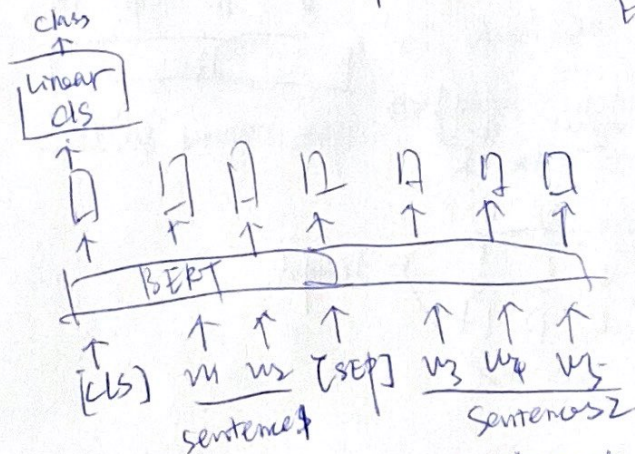 class
Linear
cls
BERT
[CLS] w1 w2 [SEP] w3 w4 w5
sentence1 sentences2